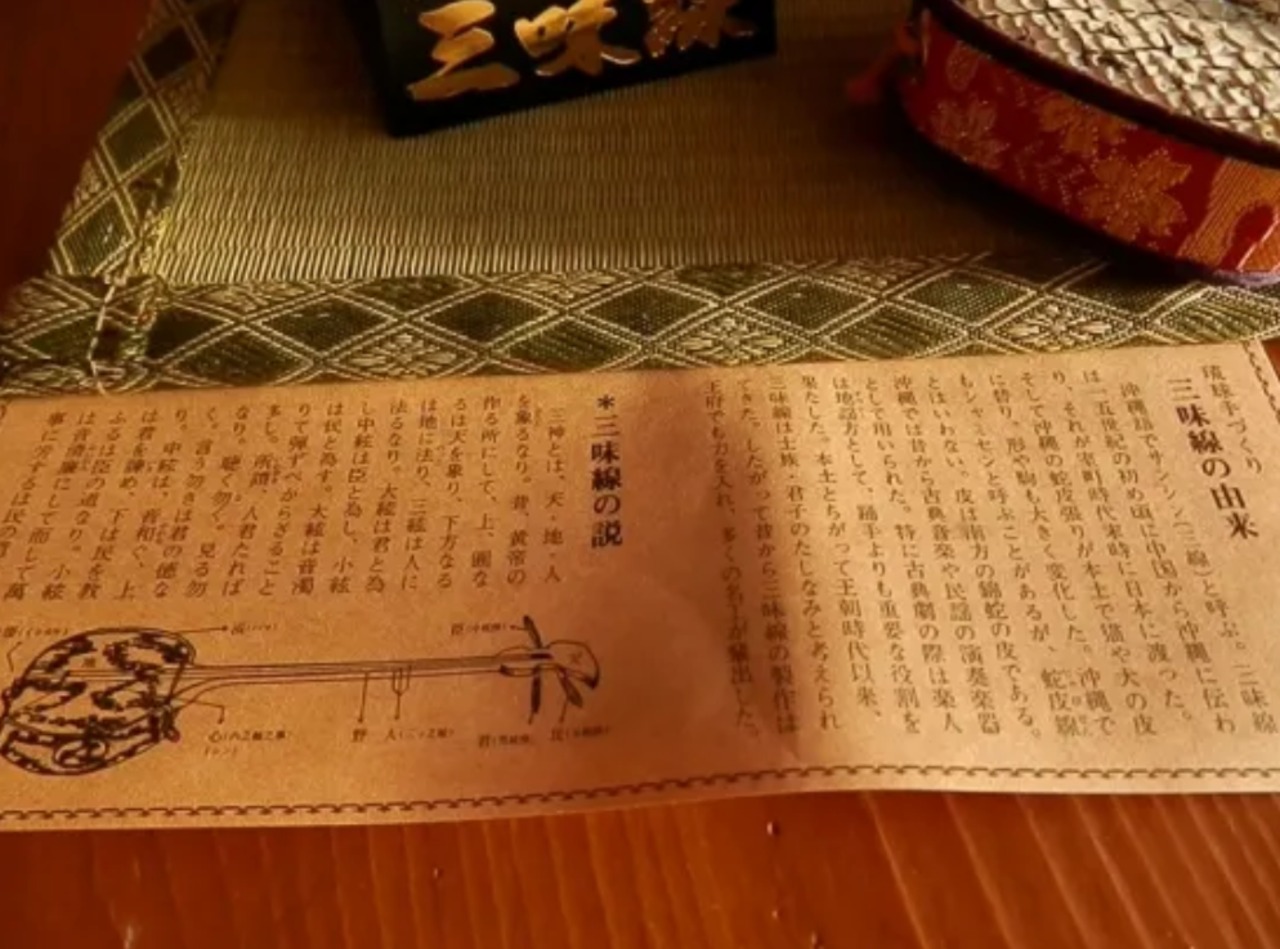 三味線
琉球手づくり
三味線の由来
沖縄島でサンシン(三線)と呼ぶ。三味線
は一五世紀の初め頃に中国から沖縄に伝わ
り、それが室町時代末時に日本に渡った。
そして沖縄の蛇皮張りが本土で猫や犬の皮
に替り、形や駒も大きく変化した。沖縄で
もシャミセンと呼ぶことがあるが、蛇皮線
とはいわない。皮は南方の錦蛇の皮である。
沖縄では昔から古典音楽や民謡の演奏楽器
として用いられた。特に古典劇の際は楽人
は地謡方として、踊手よりも重要な役割を
果たした。本土とちがって王朝時代以来、
三味線は士族・君子のたしなみと考えられ
てきた。したがって昔から三味線の製作は
王府でも力を入れ、多くの名工が輩出した。
*三味線の説
三神とは、天・地・人
を象るなり。昔、黄帝の
作る所にして、上、圓な
るは天を象り、下方なる
は地に法り、三絃は人に
法るなり。大絃は君と為
し中絃は臣と為し、小絃
は民と為す。大絃は音濁
りて弾ずべからざること
多し。所謂、人君たれば
なり。聴く勿く。見る勿
く。言う勿きは君の徳な
り。中絃は、音和ぐ、上
は君を諫め、下は民を教
ふるは臣の道なり。小絃
は音清廉にして而して萬
事に労するは民の
心
野
人
君
民
臣